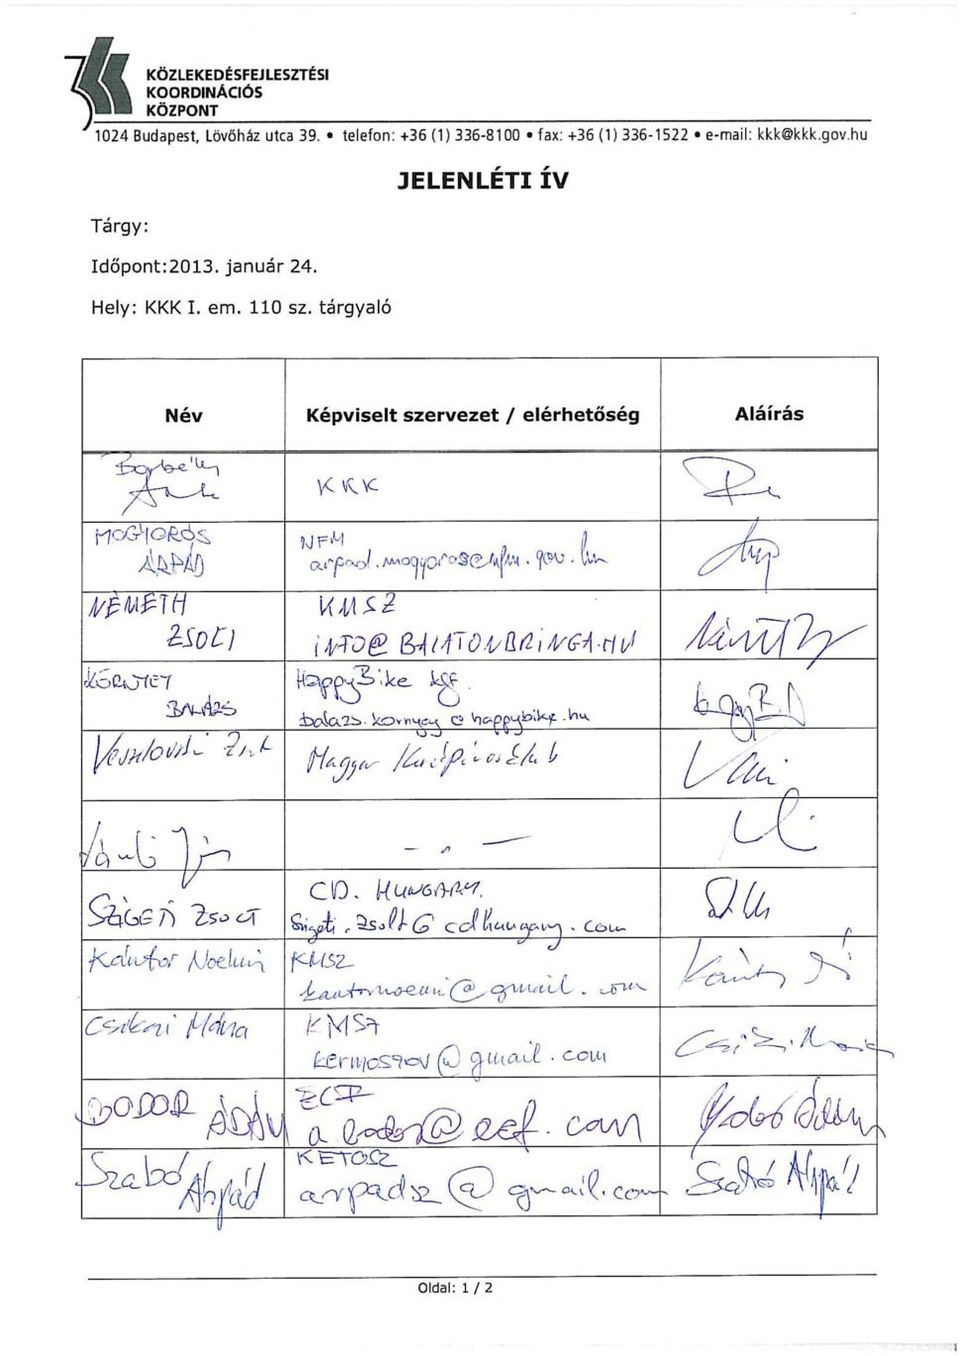 KÖZLEKEDÉSFEJLESZTÉSI
KOORDINÁCIÓS
KÖZPONT
1024 Budapest, Lövőház utca 39. • telefon: +36 (1) 336-8100 • fax: +36 (1) 336-1522 • e-mail: kkk@kkk.gov.hu
JELENLÉTI ÍV
Tárgy:
Időpont:2013. január 24.
Hely: KKK I. em. 110 sz. tárgyaló
Név Képviselt szervezet / elérhetőség Aláírás
Borbély
KKK
MOGYORÓS NFM
ÁRPÁD arpad.mogyoros@nfm.gov.hu
NÉMETH KMSZ
ZSOLT INFO@BALATONBRINGA.HU
KÖRNYEY HappyBike kft.
BALÁZS balazs.kornyey@happybike.hu
Magyar Kerékpárosklub
- " -
CD. HUNGARY.
SZIGETI ZSOLT Szigeti.Zsolt@cdhungary.com
Kántor Noémi KMSZ
kantornoemi@gmail.com
Csikai Mária KMSZ
kermoszov@gmail.com
BODOR ECF
ÁDÁM a.bodor@ecf.com
Szabó KETOSZ
Árpád arpadsz@gmail.com Szabó Árpád
Oldal: 1 / 2